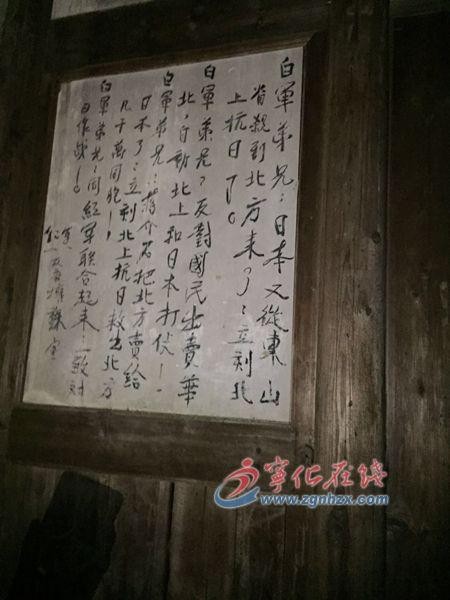 白軍弟兄：日本又從東山
省到北方来了：立刻北
上抗日了。
白軍弟兄？反對國民出賣華
北，自動北上和日本打仗！
白軍弟兄：蔣介石把北方賣給
日本了：立刻北上抗日救出北方
几千萬同胞！
白軍弟兄：同紅軍联合起来：一致对
日作战！
宁化在线
www.zgnhzx.com